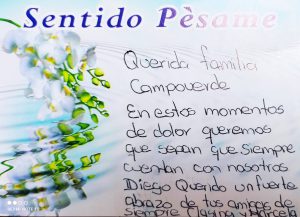 Sentido Pèsame
Querida familia
Campoverde
En estos momentos
de dolor queremos
que sepan que siempre
cuentan con nosotros
Diego Querido un fuerte
abrazo de tus amigos de
siempre